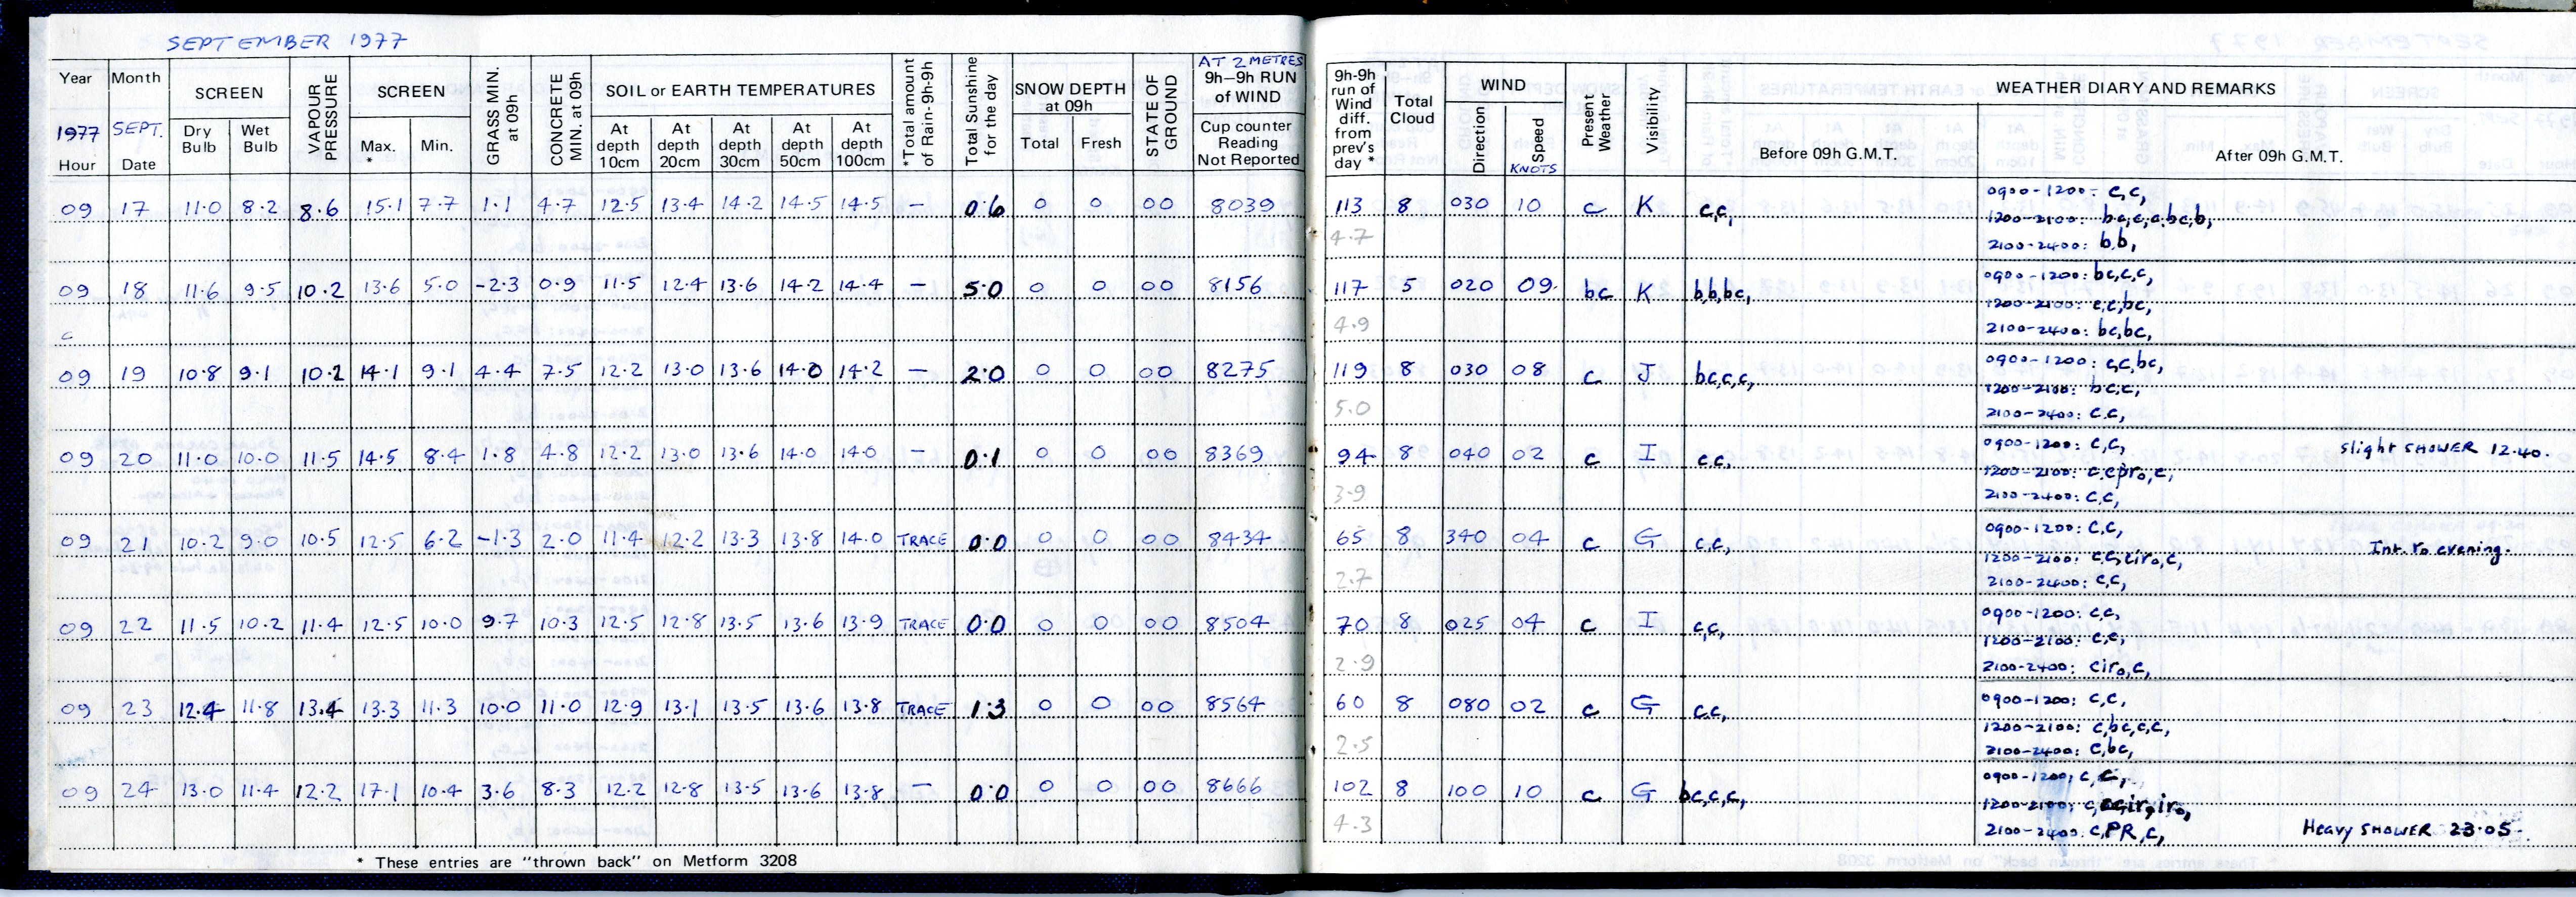 SEPTEMBER 1977
Year Month SCREEN VAPOUR PRESSURE SCREEN GRASS MIN. at 09h CONCRETE MIN. at 09h SOIL or EARTH TEMPERATURES *Total amount of Rain-9h-9h Total Sunshine for the day SNOW DEPTH at 09h STATE OF GROUND AT 2 METRES 9h—9h RUN of WIND
1977 SEPT. Dry Bulb Wet Bulb Max. * Min. At depth 10cm At depth 20cm At depth 30cm At depth 50cm At depth 100cm Total Fresh Cup counter Reading Not Reported
Hour Date
09 17 11.0 8.2 8.6 15.1 7.7 1.1 4.7 12.5 13.4 14.2 14.5 14.5 — 0.6 0 0 00 8039
09 18 11.6 9.5 10.2 13.6 5.0 -2.3 0.9 11.5 12.4 13.6 14.2 14.4 — 5.0 0 0 00 8156
c
09 19 10.8 9.1 10.2 14.1 9.1 4.4 7.5 12.2 13.0 13.6 14.0 14.2 — 2.0 0 0 00 8275
09 20 11.0 10.0 11.5 14.5 8.4 1.8 4.8 12.2 13.0 13.6 14.0 14.0 — 0.1 0 0 00 8369
09 21 10.2 9.0 10.5 12.5 6.2 -1.3 2.0 11.4 12.2 13.3 13.8 14.0 TRACE 0.0 0 0 00 8434
09 22 11.5 10.2 11.4 12.5 10.0 9.7 10.3 12.5 12.8 13.5 13.6 13.9 TRACE 0.0 0 0 00 8504
09 23 12.4 11.8 13.4 13.3 11.3 10.0 11.0 12.9 13.1 13.5 13.6 13.8 TRACE 1.3 0 0 00 8564
09 24 13.0 11.4 12.2 17.1 10.4 3.6 8.3 12.2 12.8 13.5 13.6 13.8 — 0.0 0 0 00 8666
* These entries are "thrown back" on Metform 3208
9h-9h run of Wind diff. from prev's day * Total Cloud WIND Present Weather Visibility WEATHER DIARY AND REMARKS
Direction Speed KNOTS Before 09h G.M.T. After 09h G.M.T.
113 8 030 10 c K c,c, 0900-1200- c,c,
1200-2100: bc,c,c,bc,b,
4.7 2100-2400: b,b,
117 5 020 09 bc K b,b,bc, 0900-1200: bc,c,c,
1200-2100: c,c,bc,
4.9 2100-2400: bc,bc,
119 8 030 08 c J bc,c,c, 0900-1200: c,c,bc,
1200-2100: bc,c,
5.0 2100-2400: c,c,
94 8 040 02 c I c,c, 0900-1200: c,c, slight SHOWER 12.40.
1200-2100: c,cpro,c,
3.9 2100-2400: c,c,
65 8 340 04 c G c,c, 0900-1200: c,c, Int. ro evening.
1200-2100: c,c,ciro,c,
2.7 2100-2400: c,c,
70 8 025 04 c I c,c, 0900-1200: c,c,
1200-2100: c,c,
2.9 2100-2400: ciro,c,
60 8 080 02 c G c,c, 0900-1200: c,c,
1200-2100: c,bc,c,c,
2.5 2100-2400: c,bc,
102 8 100 10 c G bc,c,c, 0900-1200; c,c,
1200-2100: c,
4.3 2100-2400: c,PR,c, Heavy SHOWER 23.05.